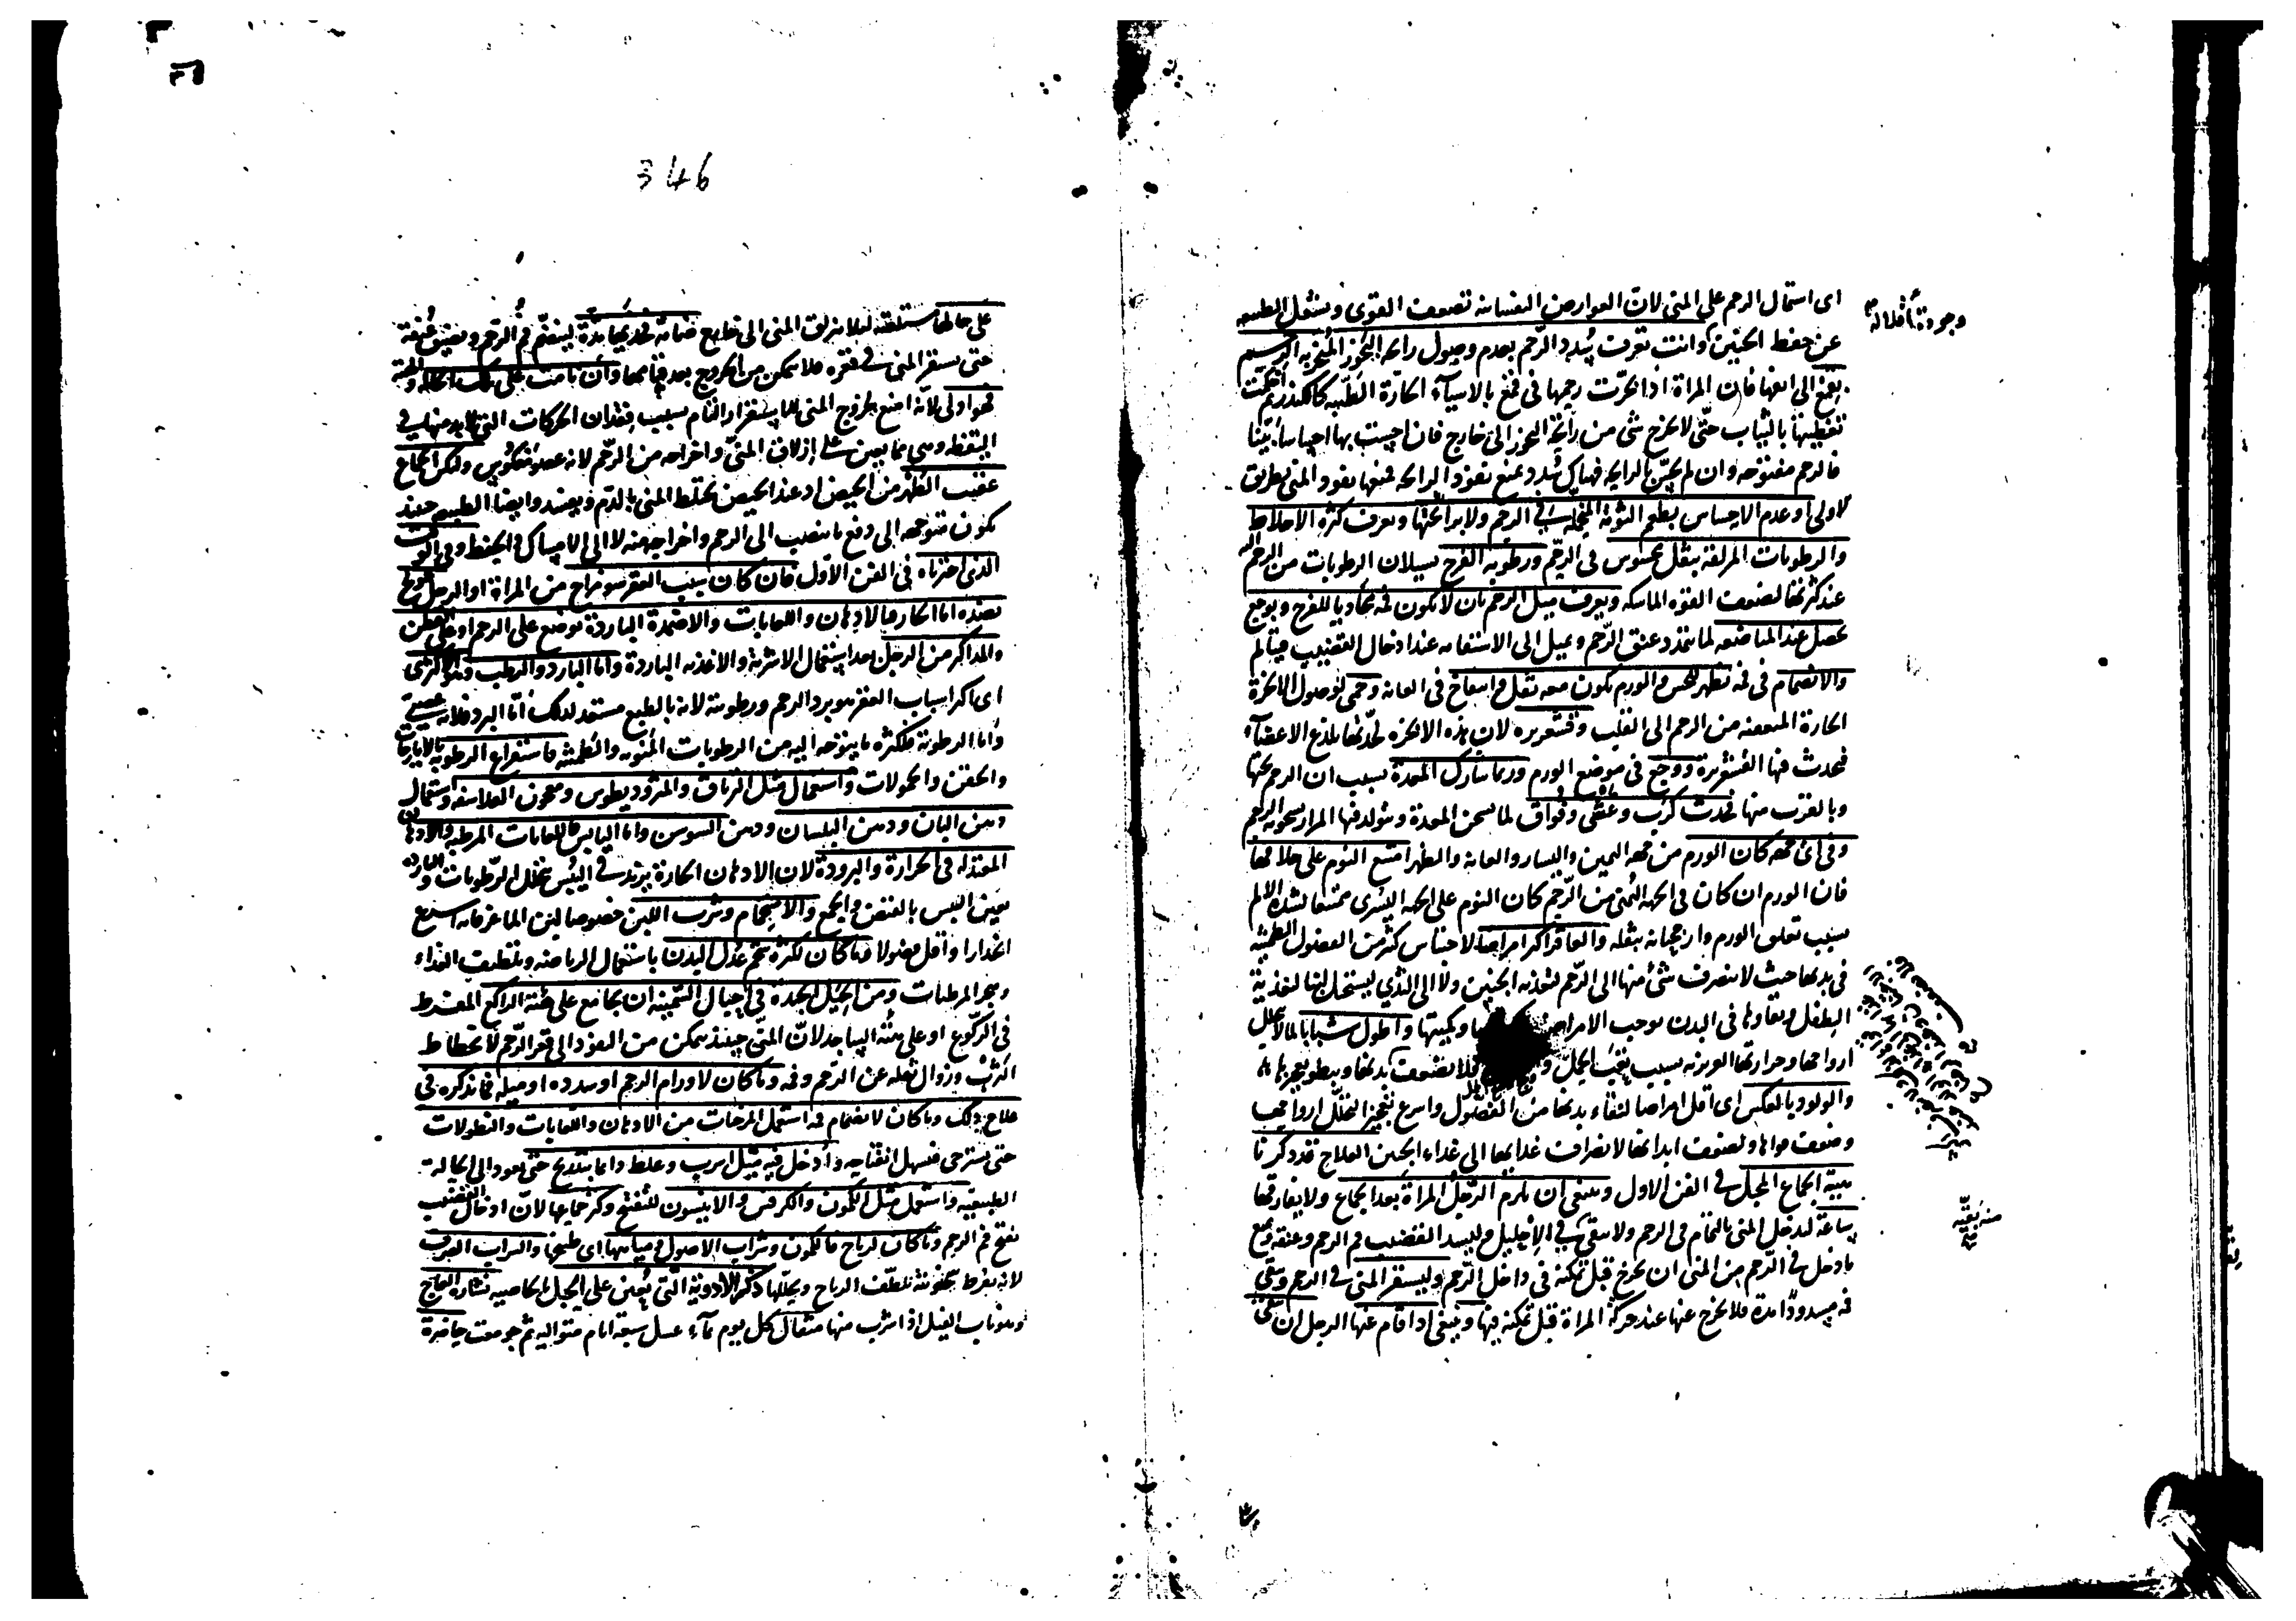 اى اشتمال الرحم على المنى لان العوارض النفسانيه تضعف القوى وتشغل الطبيعه
عن حفظ الجنين وانت تعرف سدد الرحم بعدم وصول رائحه البخور المتبخر به
الى انفها فان المراة اذا بخرت رحمها فى قمع بالاشياء الحارة الطيبه كالكندر
تغطيها بالثياب حتى لا يخرج شى من رائحة البخور الى خارج فان احست بها احساسا بينا
فالرحم مفتوحه وان لم تحس بالرايحه فهناك سدد تمنع نفوذ الرائحه فمنعها نفوذ المنى بطريق
الاولى او عدم الاحساس بطعم الثومة المحتملة فى الرحم ولا برائحتها وتعرف كثرة الاخلاط
والرطوبات المزلقة بثقل محسوس فى الرحم ورطوبه الفرج بسيلان الرطوبات من الرحم
عند كثرتها لضعف القوه الماسكه ويعرف ميل الرحم بان لا يكون فمه محاذيا للفرج وبوجع
يحصل عند المباضعه لما يتمدد عنق الرحم ويميل الى الاستقامه عند ادخال القضيب فيتالم
والانضمام فى فمه يظهر للحس والورم يكون معه ثقل وانتفاخ فى العانه وحمى لوصول الابخرة
الحارة المتعفنه من الرحم الى القلب وقشعريره لان هذه الابخره لحدتها تلذع الاعضآء
فيحدث فيها القشعريرة ووجع فى موضع الورم وربما شارك المعدة بسبب ان الرحم تحتها
وبالقرب منها فيحدث كرب وغثى وفواق لما يسخن المعدة ويتولد فيها المرار بسخونه الرحم
وفى اى جهه كان الورم من جهه اليمين واليسار والعانه والظهر امتنع النوم على خلافها
فان الورم ان كان فى الجهه اليمنى من الرحم كان النوم على الجهه اليسرى ممتنعا لشدة الالم
بسبب تعلق الورم وارجحنانه بثقله والعاقر اكثر امراضا لاحتباس كثير من الفضول الطمثيه
فى بدنها حيث لا ينصرف شئ منها الى الرحم لتغذيه الجنين ولا الى الثدي ليستحيل لبنا لتغذية
الطفل وبقاوها فى البدن يوجب الامراض وكميتها واطول شبابا لما لا يتحلل
ارواحها وحرارتها الغريزيه بسبب الحمل فلا يضعف بدنها ويبطو عجزها
والولود بالعكس اى اقل امراضا لنقاء بدنها من الفضول واسرع تعجيزا لتحلل ارواحها
وضعف قواها ولضعف ابدانها لانصراف غذائها الى غذاء الجنين العلاج قد ذكرنا
هيئة الجماع المحبل فى الفن الاول وينبغى ان يلزم الرجل المراة بعد الجماع ولا يفارقها
ساعة ليدخل المنى بالتمام فى الرحم ولا يبقى فى الاحليل وليسد القضيب فم الرحم وعنقه ويمنع
ما دخل فى الرحم من المنى ان يخرج قبل تمكنه فى داخل الرحم وليستقر المنى فى الرحم ويبقى
فمه مسدودا مدة فلا يخرج عنها عند حركة المراة قبل تمكنه فيها وينبغى اذا قام عنها الرجل ان تبقى
346
على حالها مستلقيه لئلا ينزلق المنى الى خارج ضامة فخذيها مدة لينضم فم الرحم ويضيق عنقه
حتى يستقر المنى فى قعره فلا يتمكن من الخروج بعد قيامها وان نامت على تلك الحاله
فهو اولى لانه امنع لخروج المنى لاستقراره التام بسبب فقدان الحركات التى لا بد منها فى
اليقظه وهى مما يعين على ازلاق المنى واخراجه من الرحم لانه عضو معكوس وليكن الجماع
عقيب الطهر من الحيض اذ عند الحيض يختلط المنى بالدم ويفسد وايضا الطبيعه حينئذ
تكون متوجهه الى دفع ما ينصب الى الرحم واخراجه منه لا الى الامساك والحفظ وفى الوقت
الذى اخترناه فى الفن الاول فان كان سبب العقر سو مزاج من المراة او الرجل عولج
بضده اما الحار فبالادهان واللعابات والاضمدة الباردة توضع على الرحم او على القطن
والمذاكر من الرجل بعد استعمال الاشربة والاغذيه الباردة واما البارد والرطب وهو الاكثرى
اى اكثر اسباب العقر هو برد الرحم ورطوبته لانه بالطبع مستعد لذلك اما البرد فلانه عصبى
واما الرطوبة فلكثره ما يتوجه اليه من الرطوبات المنويه والطمثيه فاستفراغ الرطوبه بالايارجات
والحقن والحمولات واستعمال مثل الترياق والمثروديطوس ومعجون الفلاسفه واستعمال
دهن البان ودهن البلسان ودهن السوسن واما اليابس فاللعابات المرطبه والادهان
المعتدله فى الحرارة والبرودة لان الادهان الحارة يزيد فى اليبس بتحليل الرطوبات والباردة
تعين اليبس بالقبض والجمع والاستحمام وشرب اللبن خصوصا لبن الماعز فانه اسرع
انحدارا واقل فضولا وما كان لكثرة شحم عدل البدن باستعمال الرياضه وتلطيف الغذاء
وهجر المرطبات ومن الحيل الجيدة فى احبال السمينة ان يجامع على هيئة الراكع المفرط
فى الركوع او على هيئة الساجد لان المنى حينئذ يتمكن من النفوذ الى قعر الرحم لانحطاط
الثرب وزوال ثقله عن الرحم وفمه وما كان لاورام الرحم او سدده او ميله فما نذكره فى
علاج ذلك وما كان لانضمام فمه استعمل المرخيات من الادهان واللعابات والنطولات
حتى يسترخى فيسهل انفتاحه وادخل فيه ميل اسرب وغلظ دائما بتدريج حتى يعود الى الحالة
الطبيعيه واستعمل مثل الكمون والكرفس والانيسون للتفتيح وكثر جماعها لان ادخال القضيب
يفتح فم الرحم وما كان لرياح فالكمون وشراب الاصول فى مياهها اى طبيخها والشراب الصرف
لانه بفرط سخونته يلطف الرياح ويحللها ذكر الادوية التى تعين على الحبل بالخاصيه نشاره العاج
وهو ناب الفيل اذا شرب منها مثقال كل يوم بمآء عسل سبعه ايام متواليه ثم جومعت حاضرة